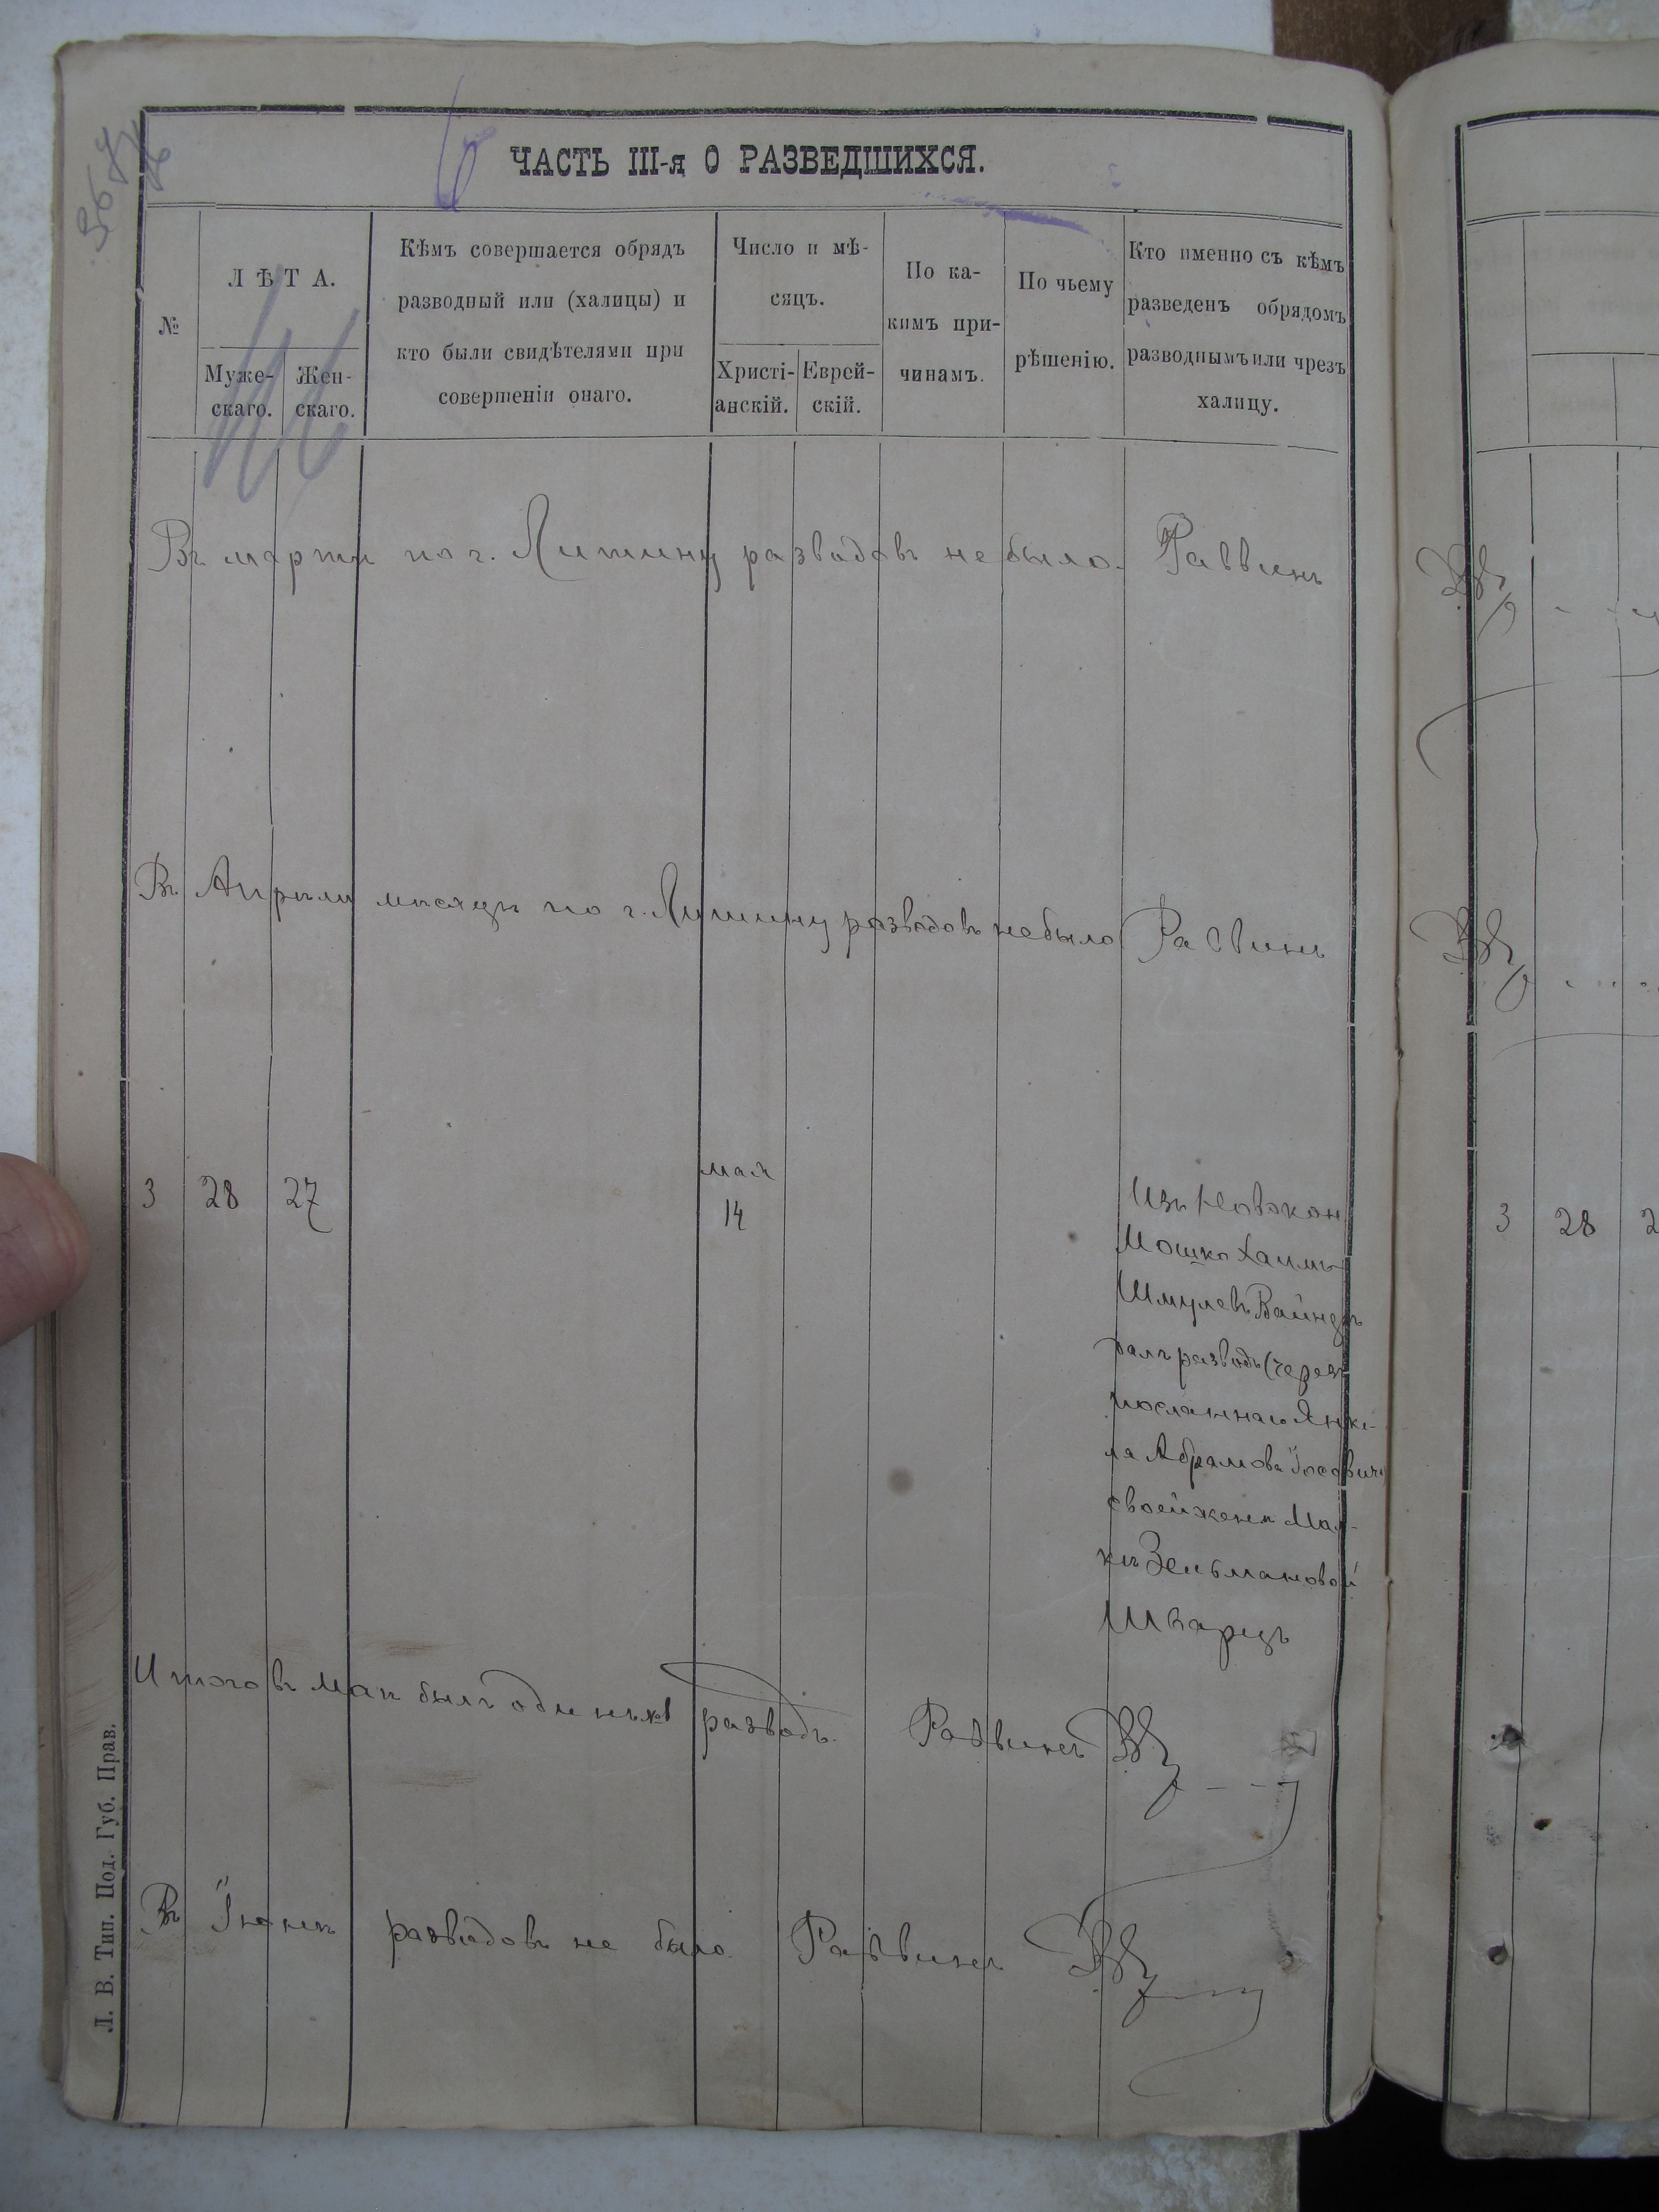 ЧАСТЬ III-я О РАЗВЕДШИХСЯ.
№
ЛѢТА.
Муже-
скаго.
Жен-
скаго.
Кѣмъ совершается обрядъ
разводный или (халицы) и
кто были свидѣтелями при
совершеніи онаго.
Число и мѣ-
сяцъ.
Христі-
анскій.
Еврей-
скій.
По ка-
кимъ при-
чинамъ.
По чьему
рѣшенію.
Кто именно съ кѣмъ
разведенъ обрядомъ
разводнымъ или чрезъ
халицу.
Въ мартѣ по г. Литину разводовъ небыло. Раввинъ
Въ Апрѣлѣ мѣсяцѣ по г. Литину разводовъ небыло Раввинъ
3 28 27
мая
14
Изъ
Мошко Хаимъ
Шмулевъ
далъ разводъ (черезъ
посланнаго Янке-
ля Абрамова
своей женѣ Мал-
кѣ Зельмановой
Шварцъ
Итого въ маѣ былъ одинъ №1 разводъ. Раввинъ
Въ Іюнѣ разводовъ не было. Раввинъ
3 28 2
Л. В. Тип. Под. Губ. Прав.